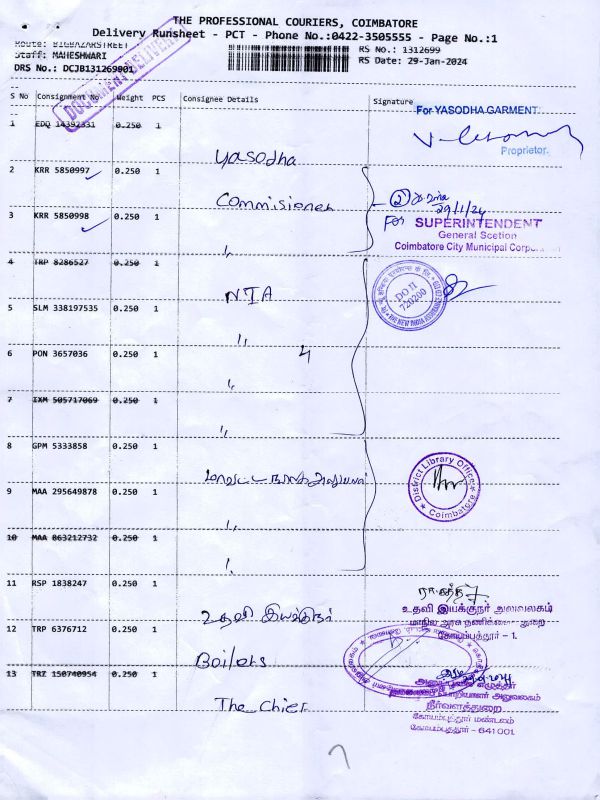 THE PROFESSIONAL COURIERS, COIMBATORE
Delivery Runsheet - PCT - Phone No.:0422-3505555 - Page No.:1
Route: BIGBAZARSTREET
RS No.: 1312699
Staff: MAHESHWARI
RS Date: 29-Jan-2024
DRS No.: DCJB131269901
DOCUMENT DELIVERY
S No Consignment No Weight PCS Consignee Details Signature
For YASODHA GARMENT
Proprietor.
1 EDQ 14392331 0.250 1 Yasodha
2 KRR 5850997 0.250 1 Commisioner
②
29/1/24
For SUPERINTENDENT
General Scetion
Coimbatore City Municipal Corporation
3 KRR 5850998 0.250 1 "
4 TRP 8286527 0.250 1 NIA
DO II
720200
5 SLM 338197535 0.250 1 "
4
6 PON 3657036 0.250 1 "
7 IXM 505717069 0.250 1 "
8 GPM 5333858 0.250 1
District Library Office
Coimbatore
9 MAA 295649878 0.250 1 "
10 MAA 863212732 0.250 1 "
11 RSP 1838247 0.250 1 உதவி இயக்குநர்
உதவி இயக்குநர் அலுவலகம்
கோயம்புத்தூர் - 1.
12 TRP 6376712 0.250 1 Boilers
13 TRZ 150740954 0.250 1 The Chief
நீர்வளத்துறை
கோயம்புத்தூர் மண்டலம்
கோயம்புத்தூர் - 641 001.